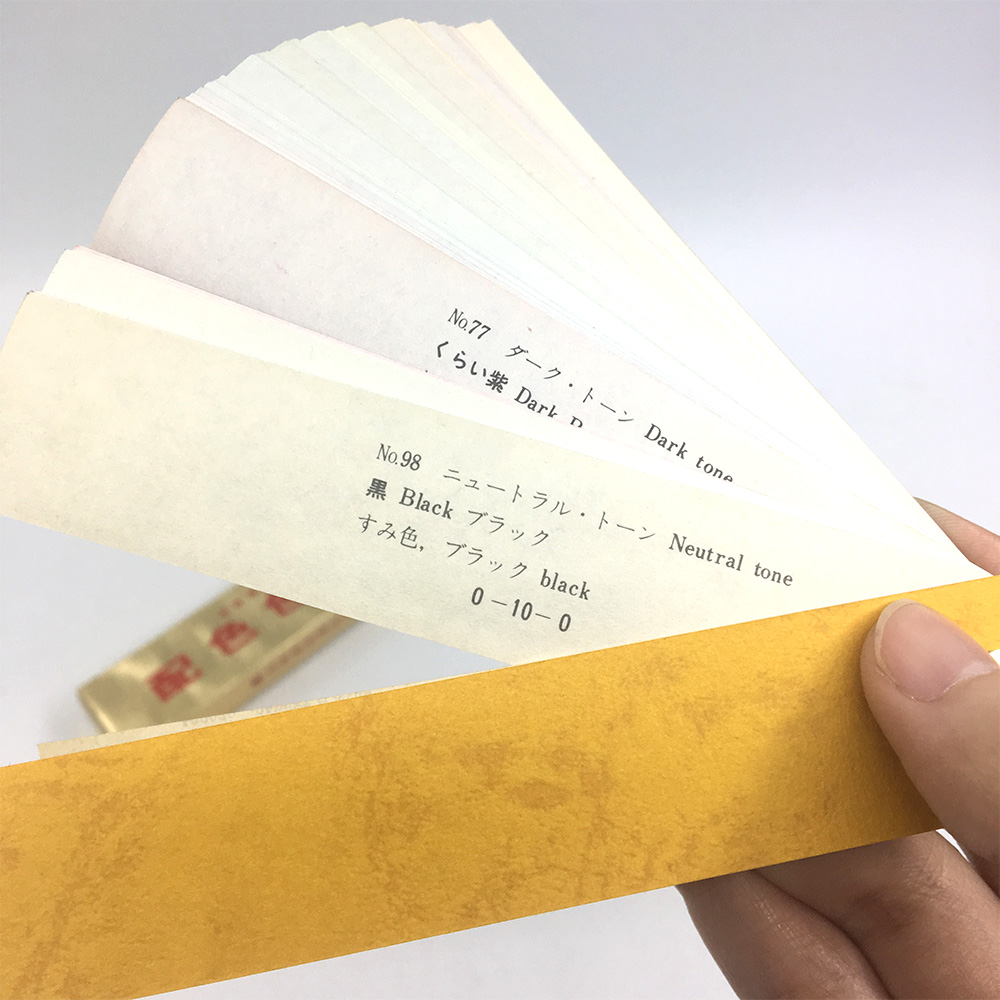 No.77 ダーク・トーン Dark tone
くらい紫 Dark
No.98 ニュートラル・トーン Neutral tone
黒 Black ブラック
すみ色, ブラック black
0－10－0
配色